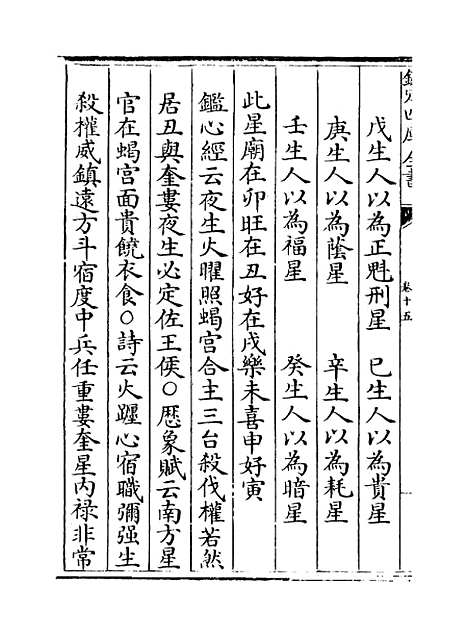 欽定四庫全書
卷十五
戊生人以為正魁刑星　已生人以為貴星
庚生人以為蔭星　辛生人以為耗星
壬生人以為福星　癸生人以為暗星
此星廟在卯旺在丑好在戌樂未喜申好寅
鑑心經云夜生火曜照蝎宫合主三台殺伐權若然
居丑與奎婁夜生必定佐王侯○厯象賦云南方星
官在蝎宫面貴饒衣食○詩云火躔心宿職彌强生
殺權威鎮遠方斗宿度中兵任重婁奎星内禄非常